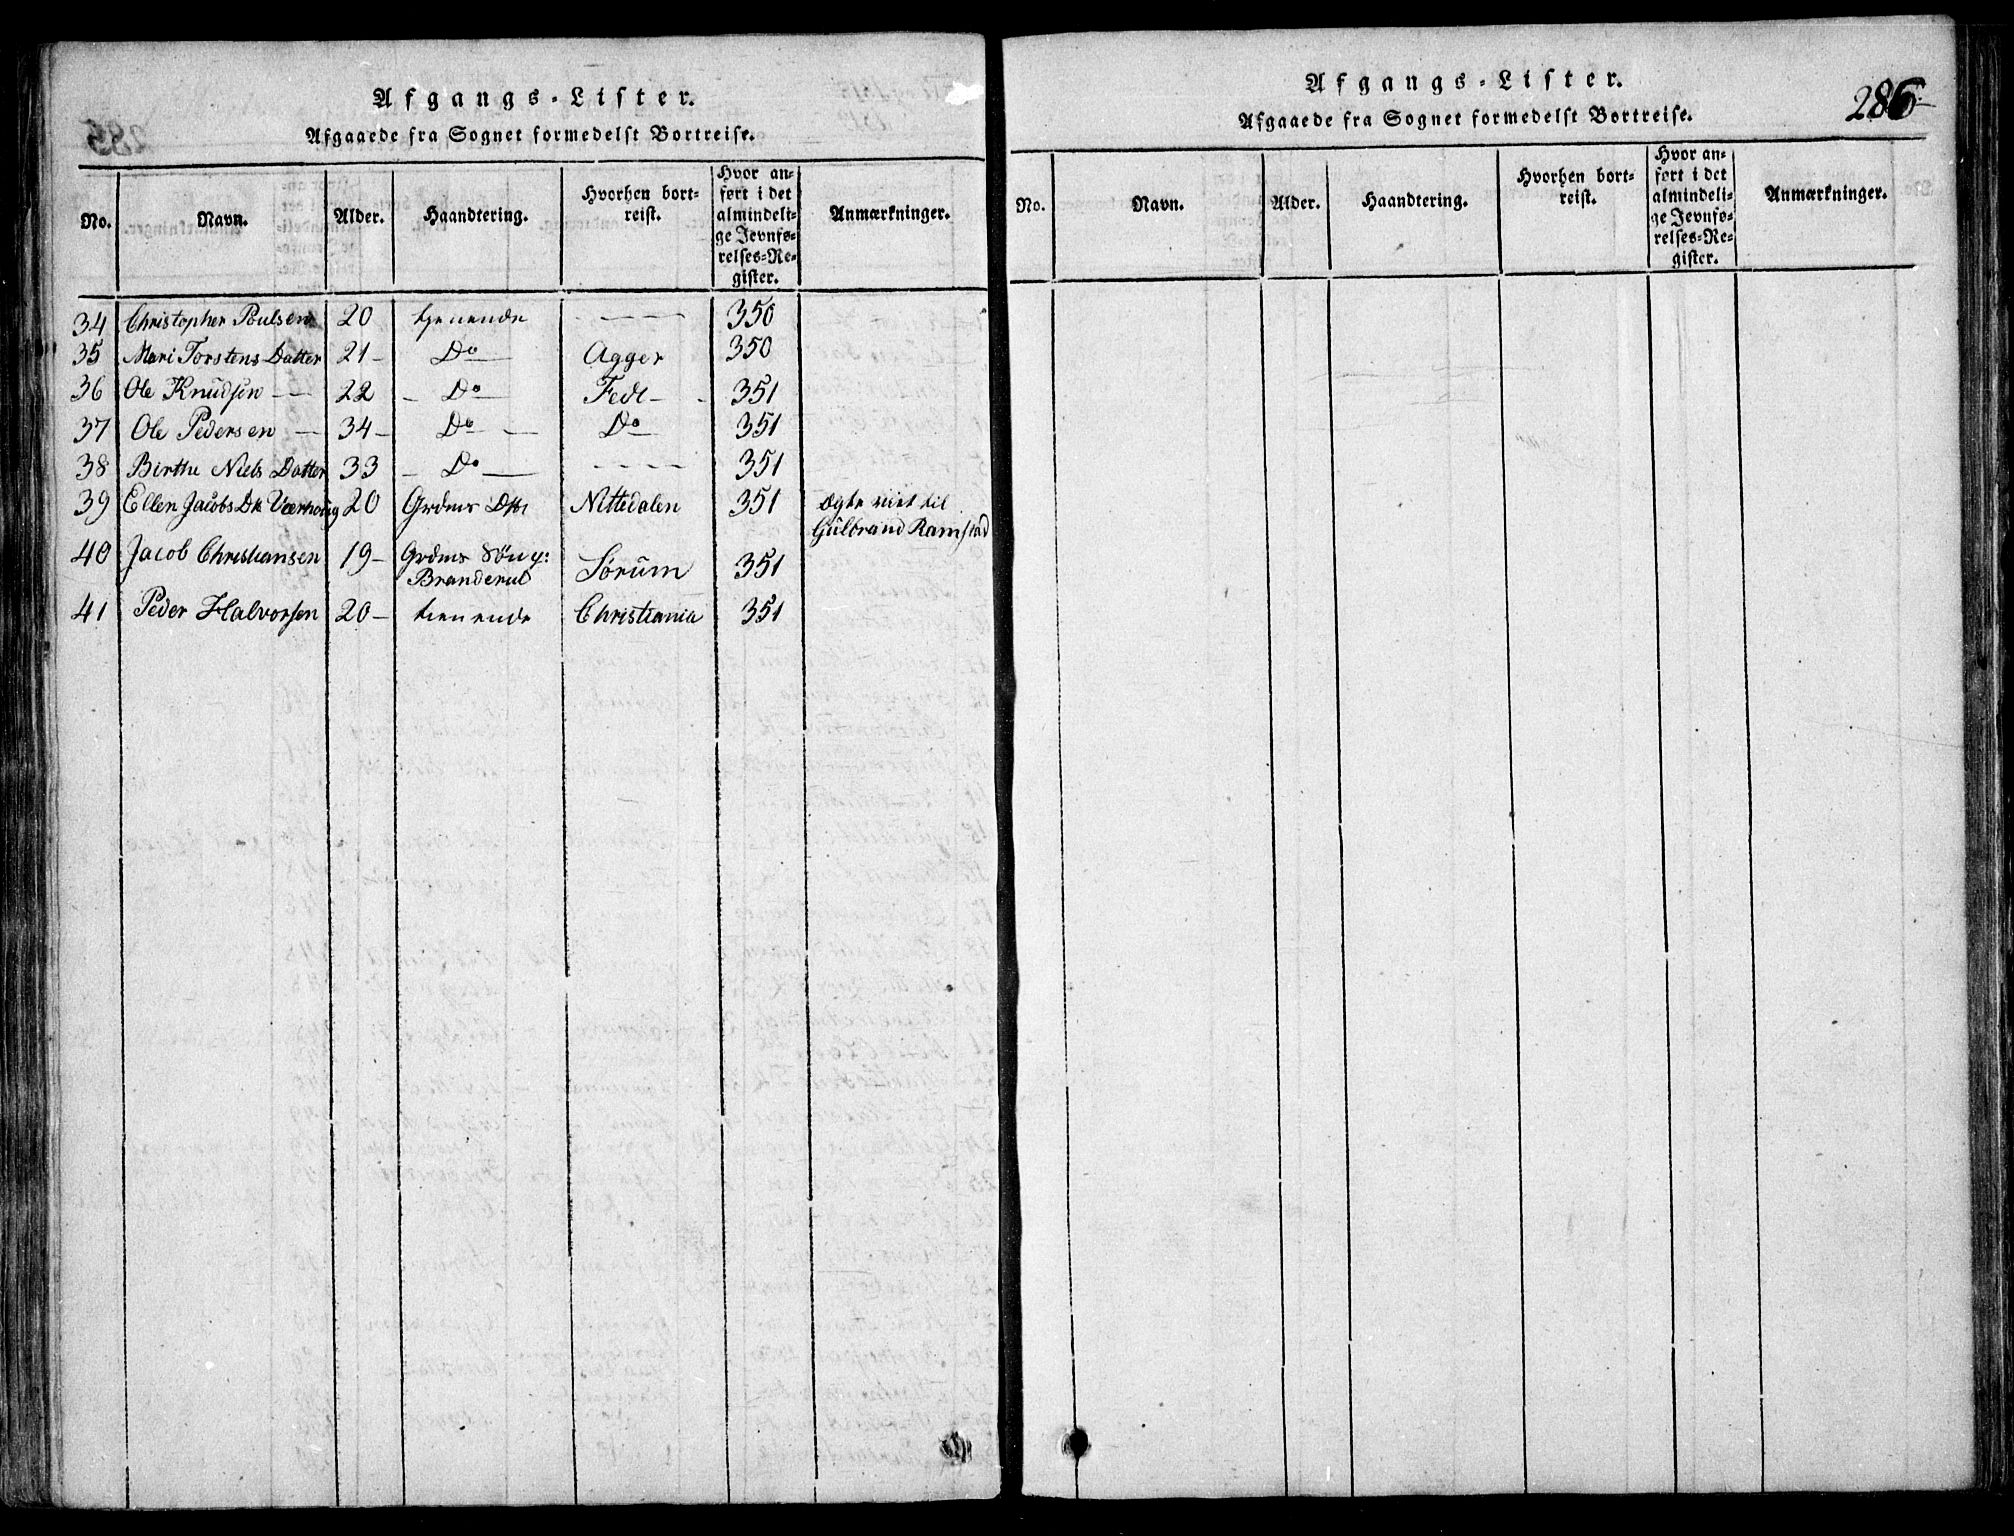 Afgangs-Lister.
Afgaaede fra Sognet formedelst Bortreise.
No. Navn. Alder. Haandtering. Hvorhen bort-reist. Hvor an-ført i det almindeli-ge Jevnfø-relses-Re-gister. Anmærkninger.
34 Christopher Poulsen 20 tjenende - - - - 350
35 Mari Torstens Datter 21 - Do Agger 350
36 Ole Knudsen - 22 - Do Fedt - - 351
37 Ole Pedersen - 34 - Do - Do 351
38 Birthe Niels Datter 33 - Do - - - - - 351
39 Ellen Jacobs Dt. Værhoug 20 Grdms Dttr Nittedalen 351 Ægte viet til
Gulbrand Ramstad
40 Jacob Christiansen 19 - Grdms Søn
Branderud Sørum 351
41 Peder Halvorsen 20 - tienende Christiania 351
Afgangs-Lister.
286
Afgaaede fra Sognet formedelst Bortreise.
No. Navn. Alder. Haandtering. Hvorhen bort-reist. Hvor an-ført i det almindeli-ge Jevnfø-relses-Re-gister. Anmærkninger.